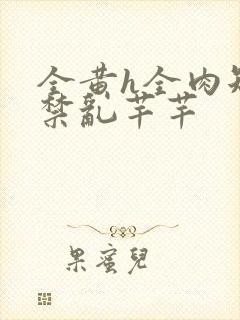 全黄h全肉短
禁乱芊芊
果蜜兒